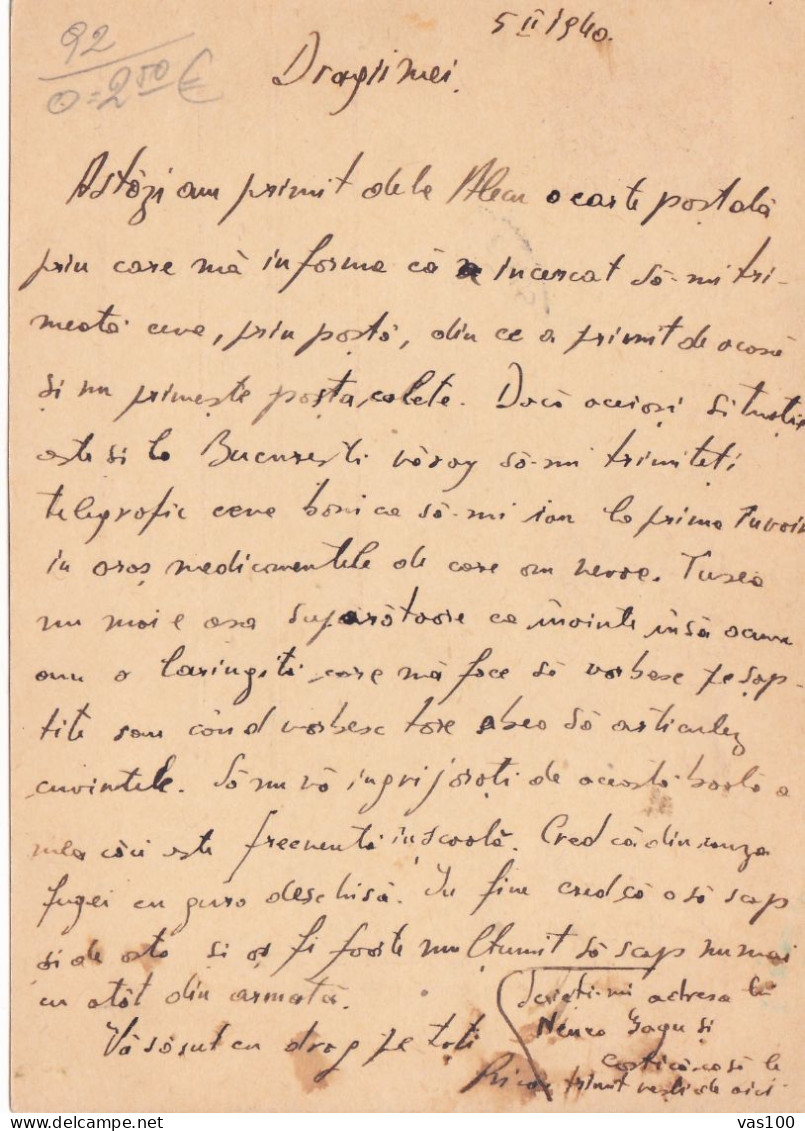 5 II 1940.
92
0=2⁵⁰ €
Dragii mei,
Astăzi am primit dela Alecu o carte poștală
prin care mă informa că a incercat să-mi tri-
meată ceva, prin poștă, din ce a primit de acasă
și nu primește poșta colete. Dacă aceiași situație
este si la București vă rog să-mi trimiteți
telegrafic ceva bani ca să-mi iau la prima invoire
in oraș medicamentele de care am nevoe. Tusea
nu mai e asa supărătoare ca înainte însă acum
am o laringită care mă face să vorbesc pe șop-
tite sau când vorbesc tare abea să articulez
cuvintele. Să nu vă ingrijorați de aceasta boală a
mea căci este frecventă in scoală. Cred că din cauza
fugei cu gura deschisă. In fine cred că o să scap
si de asta si aș fi foarte mulțumit să scap numai
cu atât din armată.
Vă sărut cu drag pe toți
Scrieți-mi adresa lui
Nenea Gagu și
Costică ca să le
trimit vesti de aici